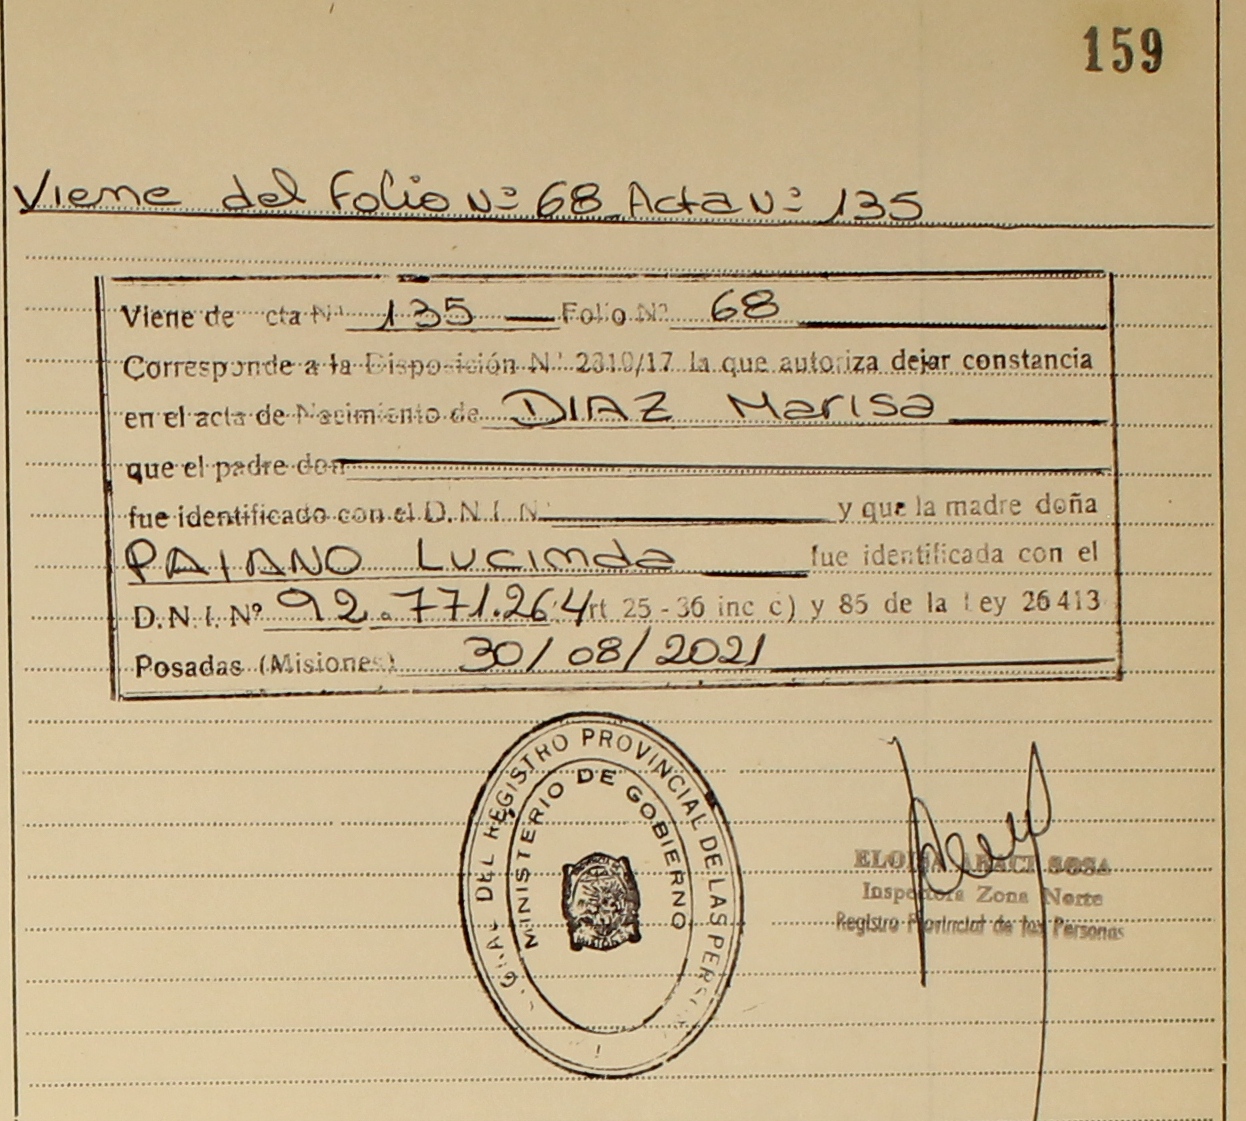 159
Viene del Folio Nº 68 Acta Nº 135
Viene de cta Nº 135 Folio Nº 68
Corresponde a la Disposición Nº 2310/17 la que autoriza dejar constancia
en el acta de Nacimiento de DIAZ Marisa
que el padre don
fue identificado con el D.N.I. Nº y que la madre doña
PAIANO Lucinda fue identificada con el
D.N.I. Nº 92.771.264 rt 25-36 inc c) y 85 de la Ley 26413
Posadas (Misiones) 30/08/2021
GRAL DEL REGISTRO PROVINCIAL DE LAS PERS
MINISTERIO DE GOBIERNO
SOSA
Inspectora Zona Norte
Registro Provincial de las Personas